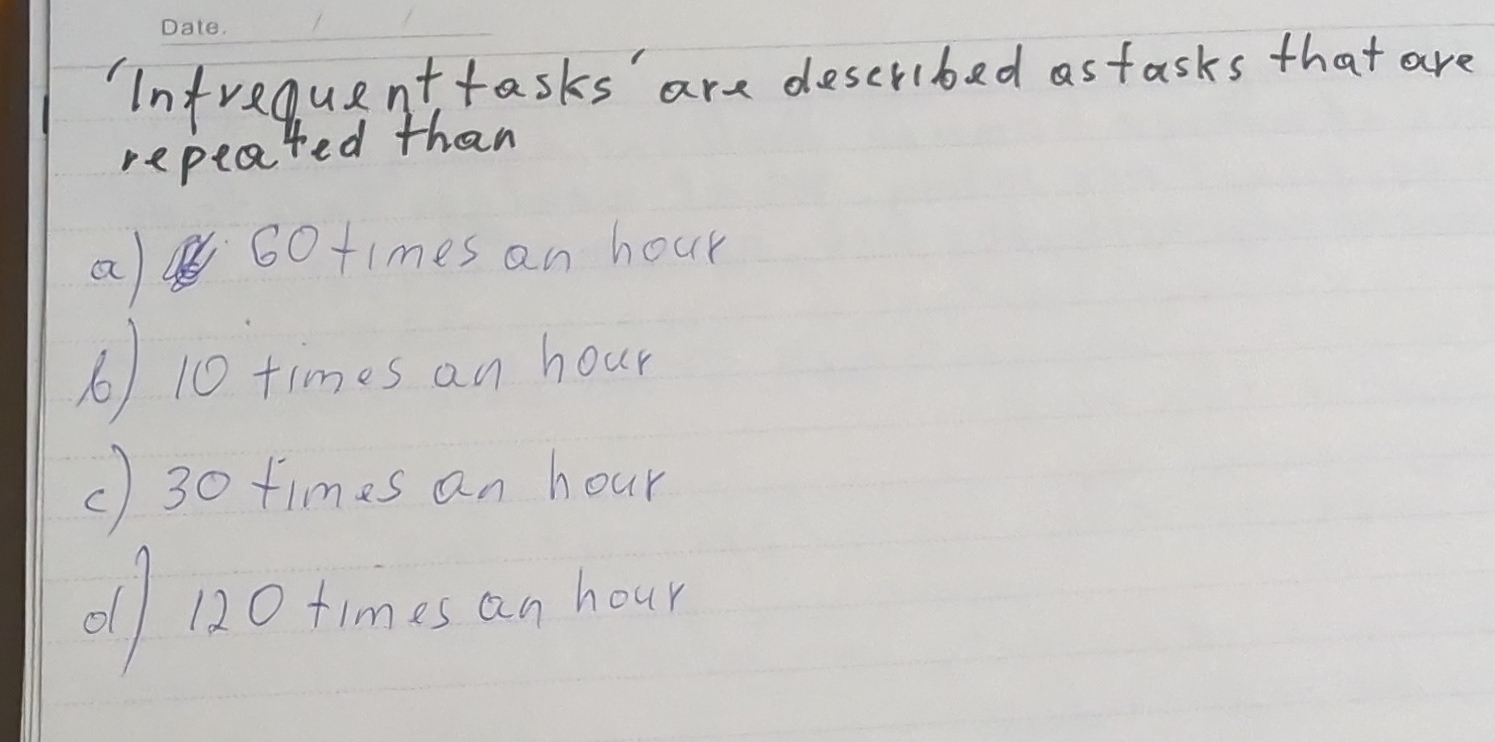 Date. / /
'Infrequent tasks' are described as tasks that are
repeated than
a) 60 times an hour
b) 10 times an hour
c) 30 times an hour
d) 120 times an hour